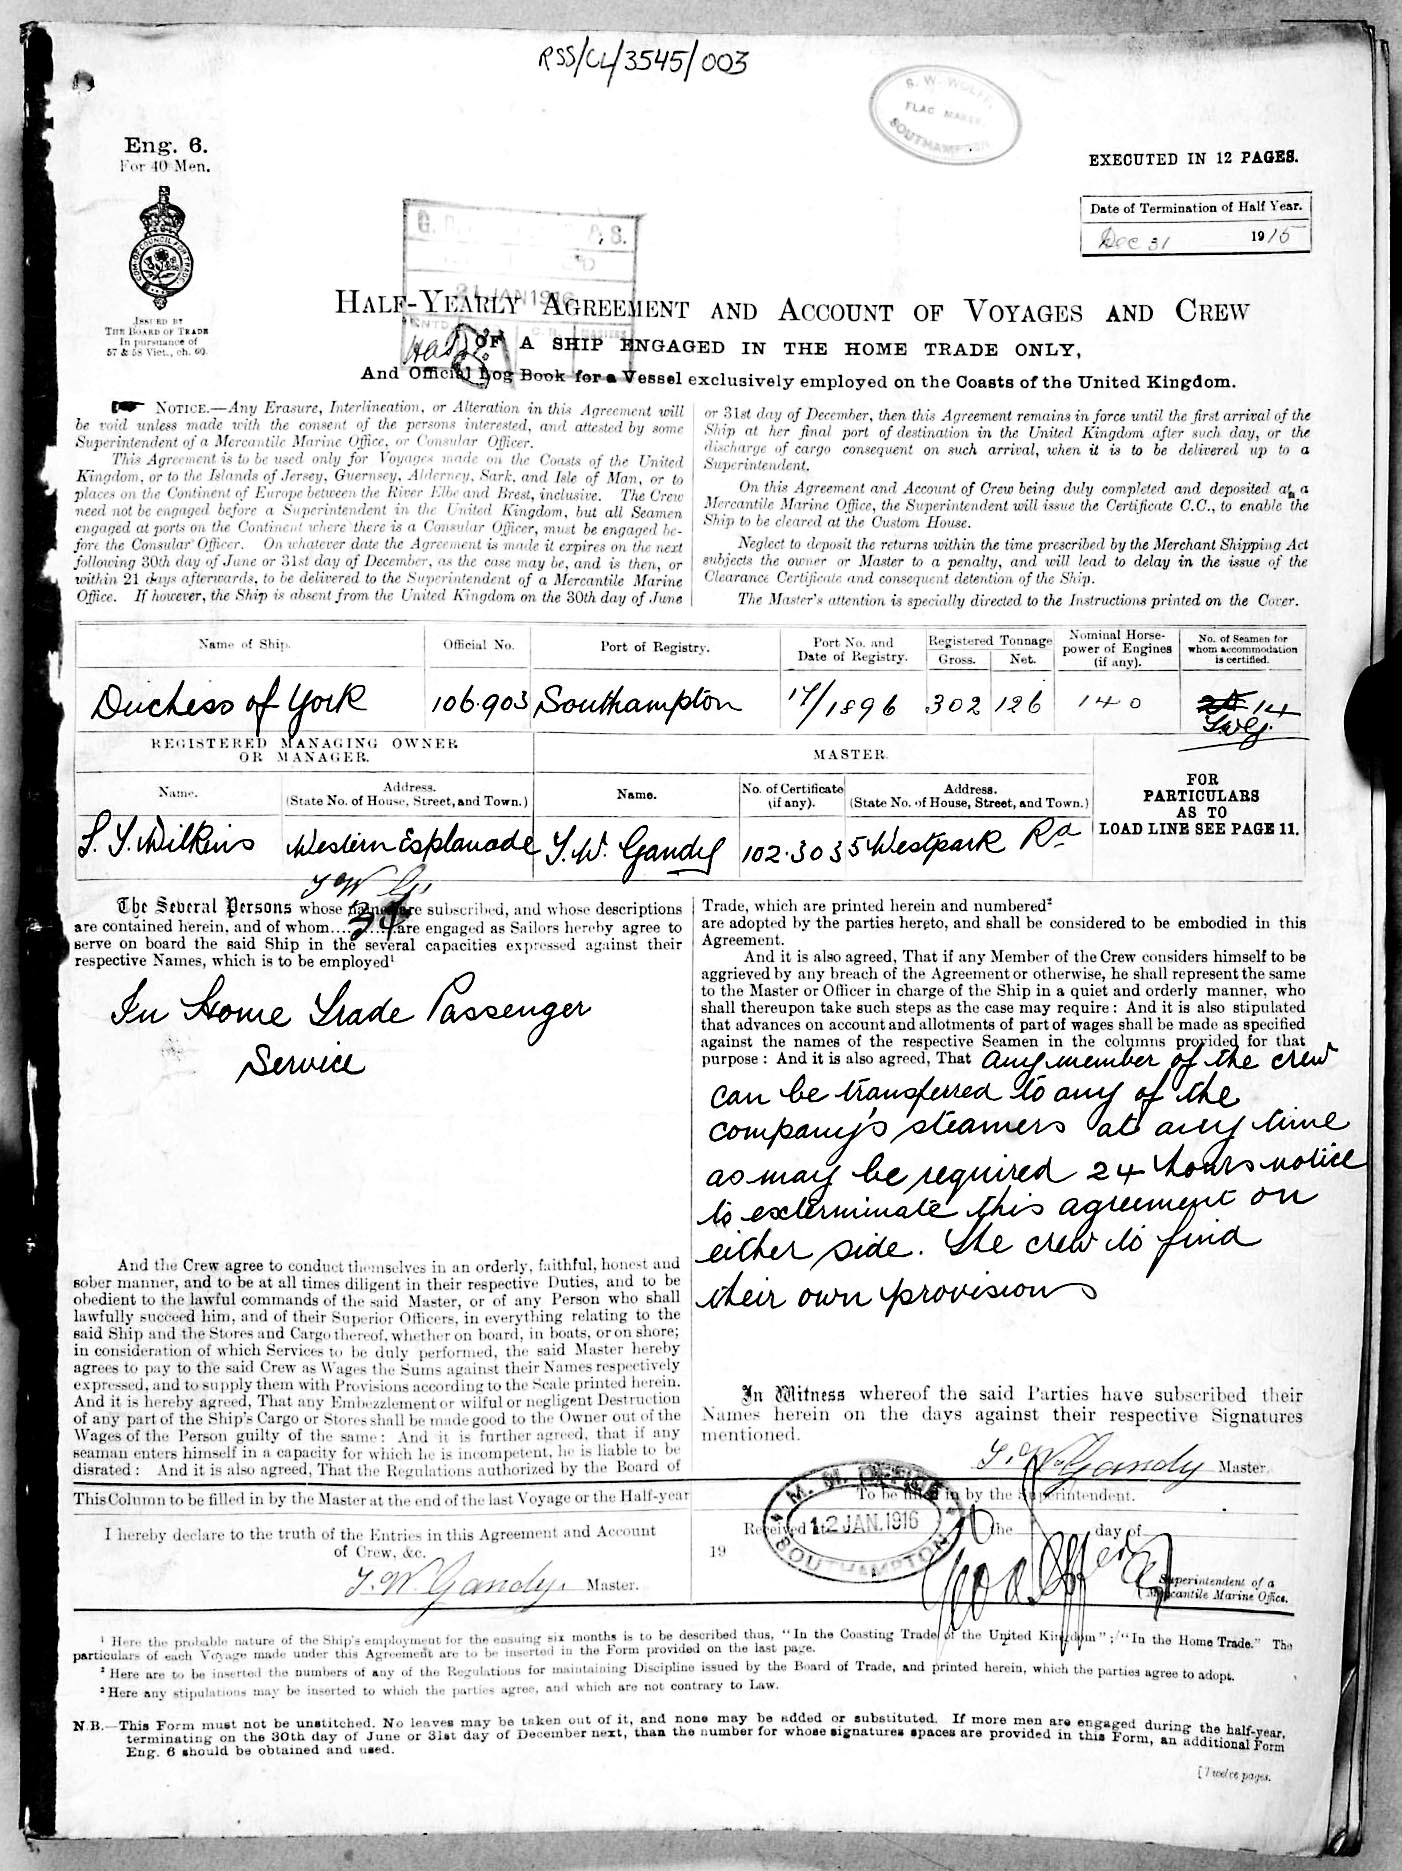 RSS/CL/3545/003
S. W. WOLFF,
FLAG MAKER,
SOUTHAMPTON
Eng. 6.
For 40 Men.
EXECUTED IN 12 PAGES.
Date of Termination of Half Year.
Dec 31 1915
ISSUED BY
THE BOARD OF TRADE
In pursuance of
57 & 58 Vict., ch. 60.
21 JAN 1916
HALF-YEARLY AGREEMENT AND ACCOUNT OF VOYAGES AND CREW
OF A SHIP ENGAGED IN THE HOME TRADE ONLY,
And Official Log Book for a Vessel exclusively employed on the Coasts of the United Kingdom.
NOTICE.—Any Erasure, Interlineation, or Alteration in this Agreement will
be void unless made with the consent of the persons interested, and attested by some
Superintendent of a Mercantile Marine Office, or Consular Officer.
This Agreement is to be used only for Voyages made on the Coasts of the United
Kingdom, or to the Islands of Jersey, Guernsey, Alderney, Sark, and Isle of Man, or to
places on the Continent of Europe between the River Elbe and Brest, inclusive. The Crew
need not be engaged before a Superintendent in the United Kingdom, but all Seamen
engaged at ports on the Continent where there is a Consular Officer, must be engaged be-
fore the Consular Officer. On whatever date the Agreement is made it expires on the next
following 30th day of June or 31st day of December, as the case may be, and is then, or
within 21 days afterwards, to be delivered to the Superintendent of a Mercantile Marine
Office. If however, the Ship is absent from the United Kingdom on the 30th day of June
or 31st day of December, then this Agreement remains in force until the first arrival of the
Ship at her final port of destination in the United Kingdom after such day, or the
discharge of cargo consequent on such arrival, when it is to be delivered up to a
Superintendent.
On this Agreement and Account of Crew being duly completed and deposited at a
Mercantile Marine Office, the Superintendent will issue the Certificate C.C., to enable the
Ship to be cleared at the Custom House.
Neglect to deposit the returns within the time prescribed by the Merchant Shipping Act
subjects the owner or Master to a penalty, and will lead to delay in the issue of the
Clearance Certificate and consequent detention of the Ship.
The Master's attention is specially directed to the Instructions printed on the Cover.
Name of Ship. Official No. Port of Registry. Port No. and Date of Registry. Registered Tonnage Gross. Net. Nominal Horse-power of Engines (if any). No. of Seamen for whom accommodation is certified.
Duchess of York 106.903 Southampton 17/1896 302 126 140 14
T.W.G.
REGISTERED MANAGING OWNER
OR MANAGER.
MASTER.
Name. Address. (State No. of House, Street, and Town.) Name. No. of Certificate (if any). Address. (State No. of House, Street, and Town.)
FOR
PARTICULARS
AS TO
LOAD LINE SEE PAGE 11.
S. Y. Wilkins Western Esplanade T. W. Gandy 102.303 5 Westpark Rd
T W G
The Several Persons whose names are subscribed, and whose descriptions
are contained herein, and of whom.... 34 ....are engaged as Sailors hereby agree to
serve on board the said Ship in the several capacities expressed against their
respective Names, which is to be employed¹
In Home Trade Passenger
Service
And the Crew agree to conduct themselves in an orderly, faithful, honest and
sober manner, and to be at all times diligent in their respective Duties, and to be
obedient to the lawful commands of the said Master, or of any Person who shall
lawfully succeed him, and of their Superior Officers, in everything relating to the
said Ship and the Stores and Cargo thereof, whether on board, in boats, or on shore;
in consideration of which Services to be duly performed, the said Master hereby
agrees to pay to the said Crew as Wages the Sums against their Names respectively
expressed, and to supply them with Provisions according to the Scale printed herein.
And it is hereby agreed, That any Embezzlement or wilful or negligent Destruction
of any part of the Ship's Cargo or Stores shall be made good to the Owner out of the
Wages of the Person guilty of the same: And it is further agreed, that if any
seaman enters himself in a capacity for which he is incompetent, he is liable to be
disrated: And it is also agreed, That the Regulations authorized by the Board of
Trade, which are printed herein and numbered²
are adopted by the parties hereto, and shall be considered to be embodied in this
Agreement.
And it is also agreed, That if any Member of the Crew considers himself to be
aggrieved by any breach of the Agreement or otherwise, he shall represent the same
to the Master or Officer in charge of the Ship in a quiet and orderly manner, who
shall thereupon take such steps as the case may require: And it is also stipulated
that advances on account and allotments of part of wages shall be made as specified
against the names of the respective Seamen in the columns provided for that
purpose: And it is also agreed, That any member of the crew
can be transferred to any of the
company's steamers at any time
as may be required 24 hours notice
to exterminate this agreement on
either side. The crew to find
their own provisions
In Witness whereof the said Parties have subscribed their
Names herein on the days against their respective Signatures
mentioned.
T. W. Gandy Master.
This Column to be filled in by the Master at the end of the last Voyage or the Half-year
I hereby declare to the truth of the Entries in this Agreement and Account
of Crew, &c.
T. W. Gandy. Master.
To be filled in by the Superintendent.
Received at the day of
19
M. M. OFFICE
12 JAN. 1916
SOUTHAMPTON
Superintendent of a
Mercantile Marine Office.
¹ Here the probable nature of the Ship's employment for the ensuing six months is to be described thus, "In the Coasting Trade of the United Kingdom"; "In the Home Trade." The
particulars of each Voyage made under this Agreement are to be inserted in the Form provided on the last page.
² Here are to be inserted the numbers of any of the Regulations for maintaining Discipline issued by the Board of Trade, and printed herein, which the parties agree to adopt.
³ Here any stipulations may be inserted to which the parties agree, and which are not contrary to Law.
N.B.—This Form must not be unstitched. No leaves may be taken out of it, and none may be added or substituted. If more men are engaged during the half-year,
terminating on the 30th day of June or 31st day of December next, than the number for whose signatures spaces are provided in this Form, an additional Form
Eng. 6 should be obtained and used.
[Twelve pages.